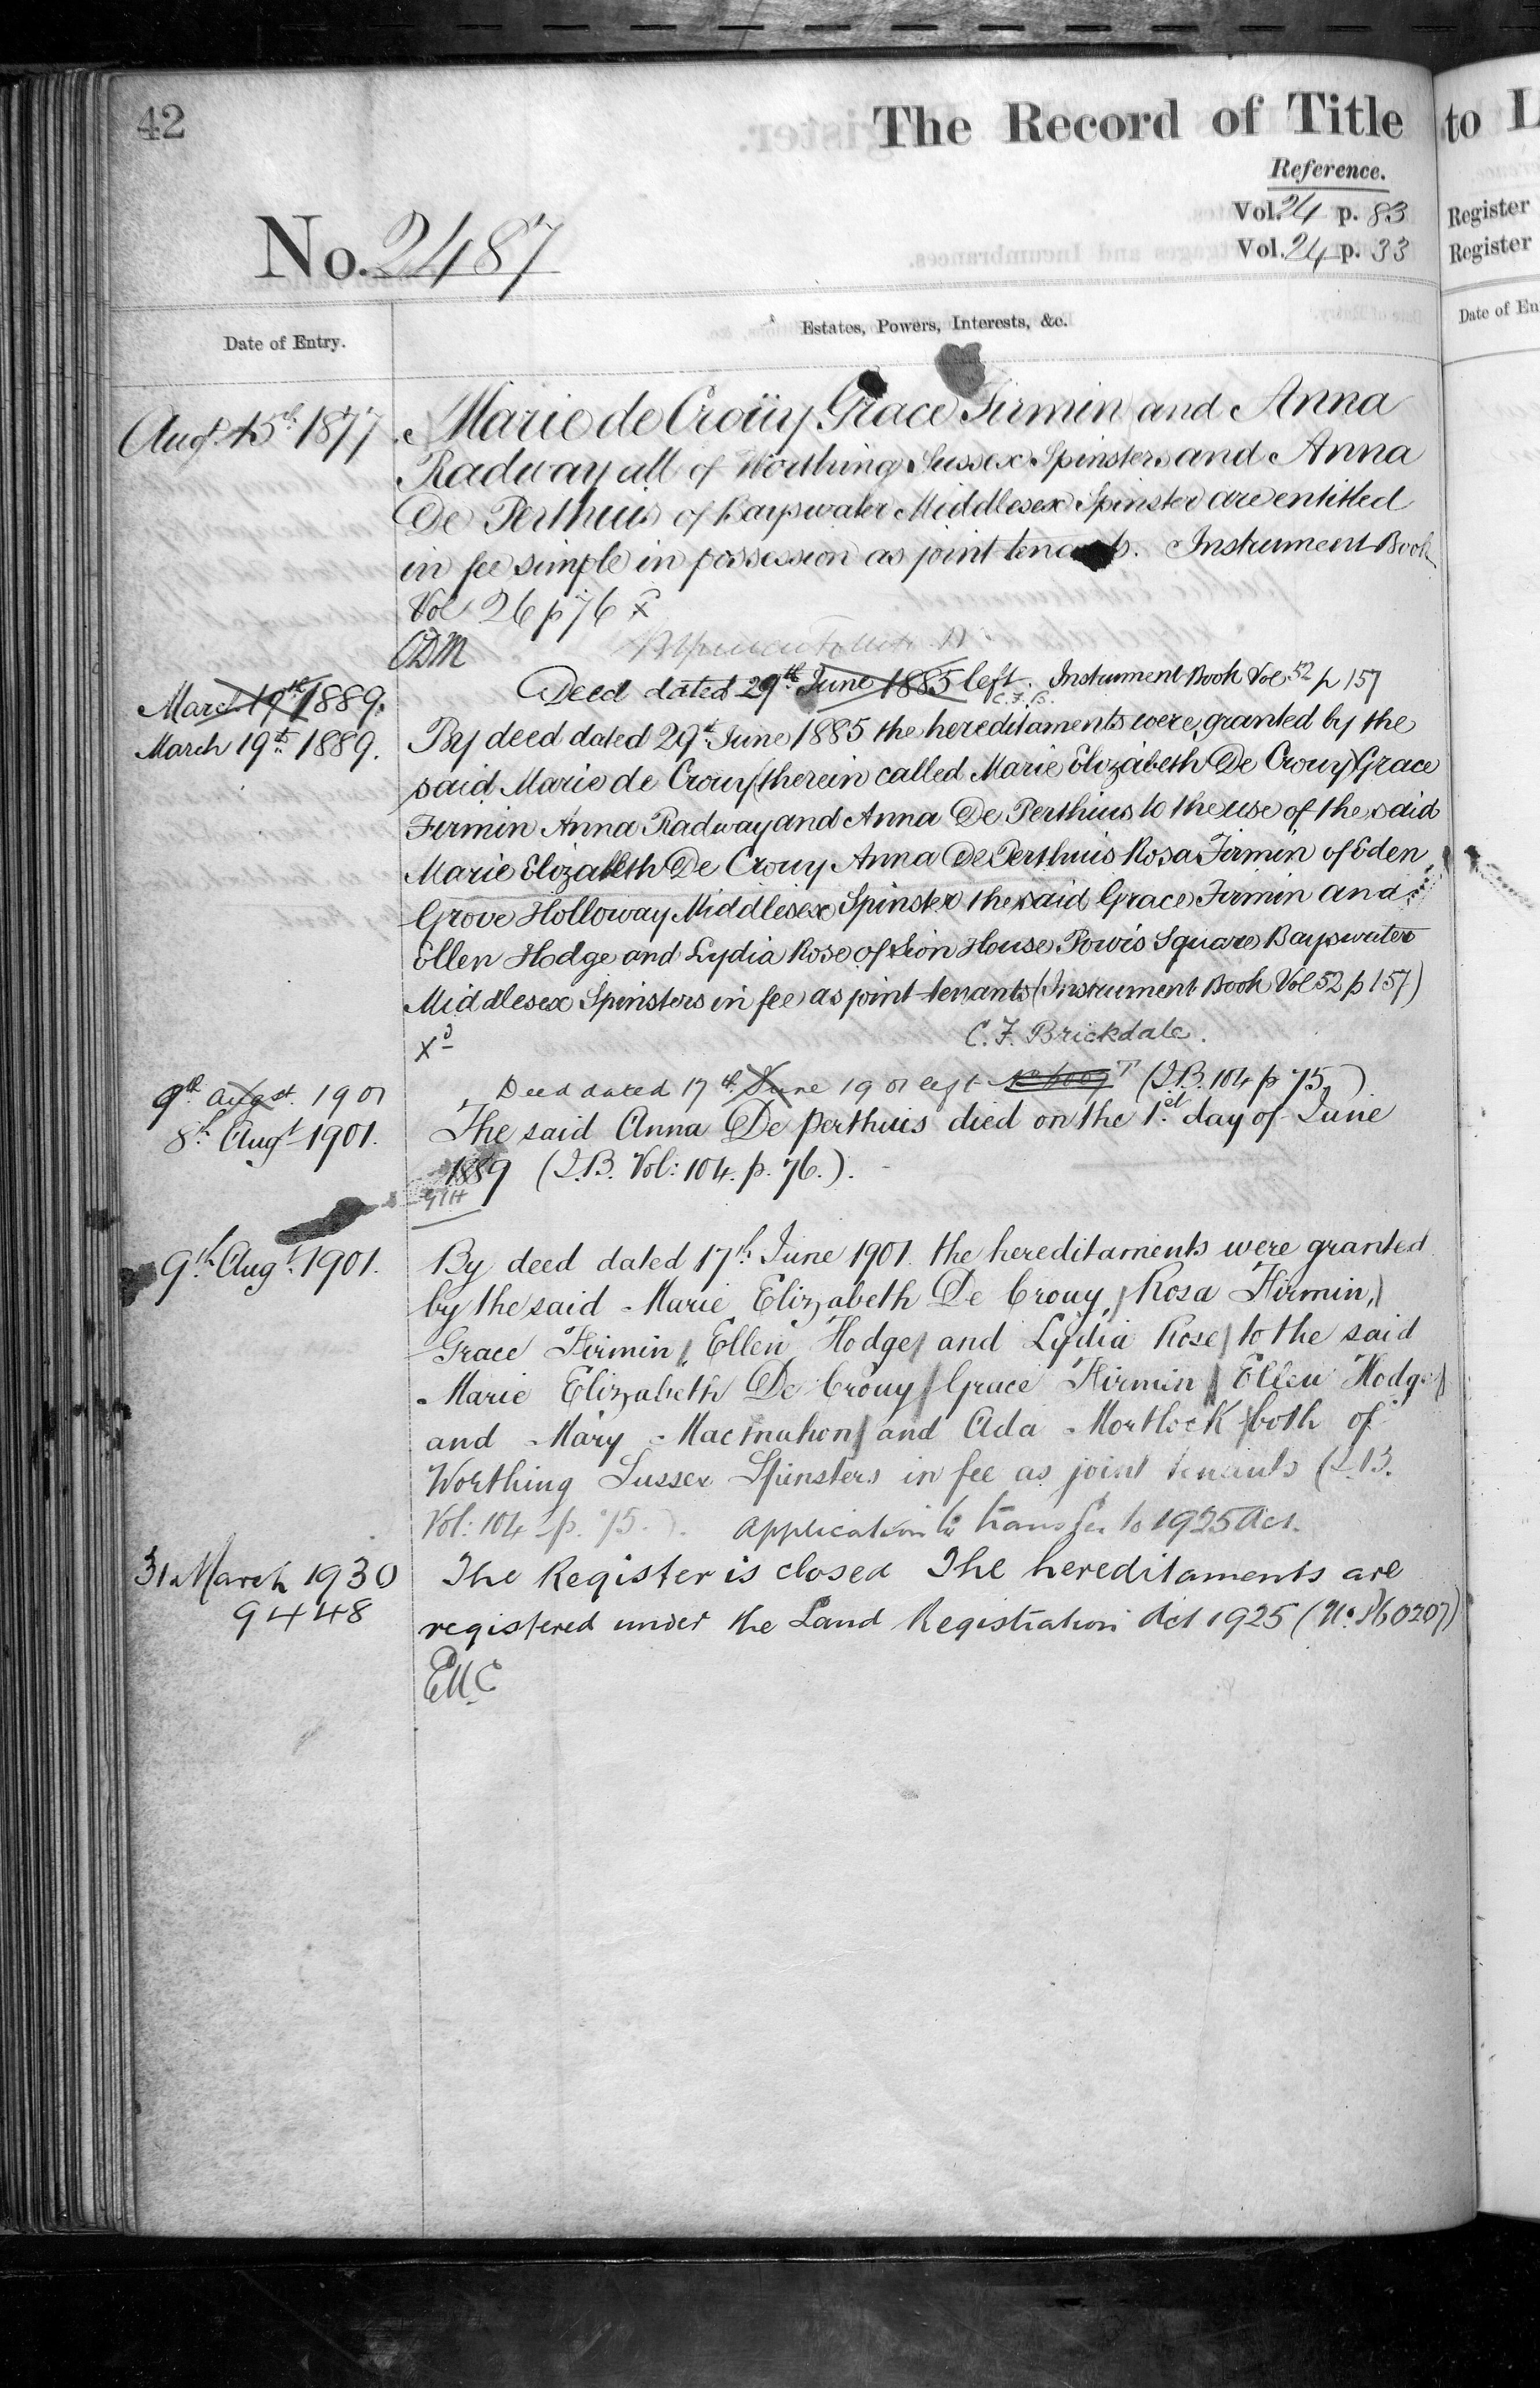 42
The Record of Title to L
Reference.
Vol. 24 p. 83
Register
Vol. 24 p. 33
Register
No. 2487
Date of Entry.
Estates, Powers, Interests, &c.
Date of En
Augt. 15th 1877
Marie de Croüy Grace Firmin and Anna
Radway all of Worthing Sussex Spinsters and Anna
De Perthuis of Bayswater Middlesex Spinster are entitled
in fee simple in possession as joint tenants. Instrument Book
Vol 26 p 76 x
CDM
March 19th 1889.
Deed dated 29th June 1885 left. Instrument Book Vol 52 p 157
C.F.B.
March 19th 1889.
By deed dated 29th June 1885 the hereditaments were granted by the
said Marie de Crouy (therein called Marie Elizabeth De Crouy) Grace
Firmin Anna Radway and Anna De Perthuis to the use of the said
Marie Elizabeth De Crouy Anna De Perthuis Rosa Firmin of Eden
Grove Holloway Middlesex Spinster the said Grace Firmin and
Ellen Hodge and Lydia Rose of Sion House Powis Square Bayswater
Middlesex Spinsters in fee as joint tenants (Instrument Book Vol 52 p 157)
C. F. Brickdale.
xd
9th augst. 1901
Deed dated 17th June 1901 left (I.B. 104 p 75)
8th Augt 1901.
The said Anna De Perthuis died on the 1st day of June
1889 (I.B. Vol: 104. p. 76.).
9th Augt. 1901.
By deed dated 17th June 1901. the hereditaments were granted
by the said Marie Elizabeth De Crouy, Rosa Firmin,
Grace Firmin, Ellen Hodge and Lydia Rose to the said
Marie Elizabeth De Crouy Grace Firmin Ellen Hodge
and Mary Macmahon and Ada Mortlock both of
Worthing Sussex Spinsters in fee as joint tenants (I.B.
Vol: 104 p. 75.). Application to transfer to 1925 Act.
31 March 1930
The Register is closed The hereditaments are
9448
registered under the Land Registration Act 1925 (No. P60207)
EMC